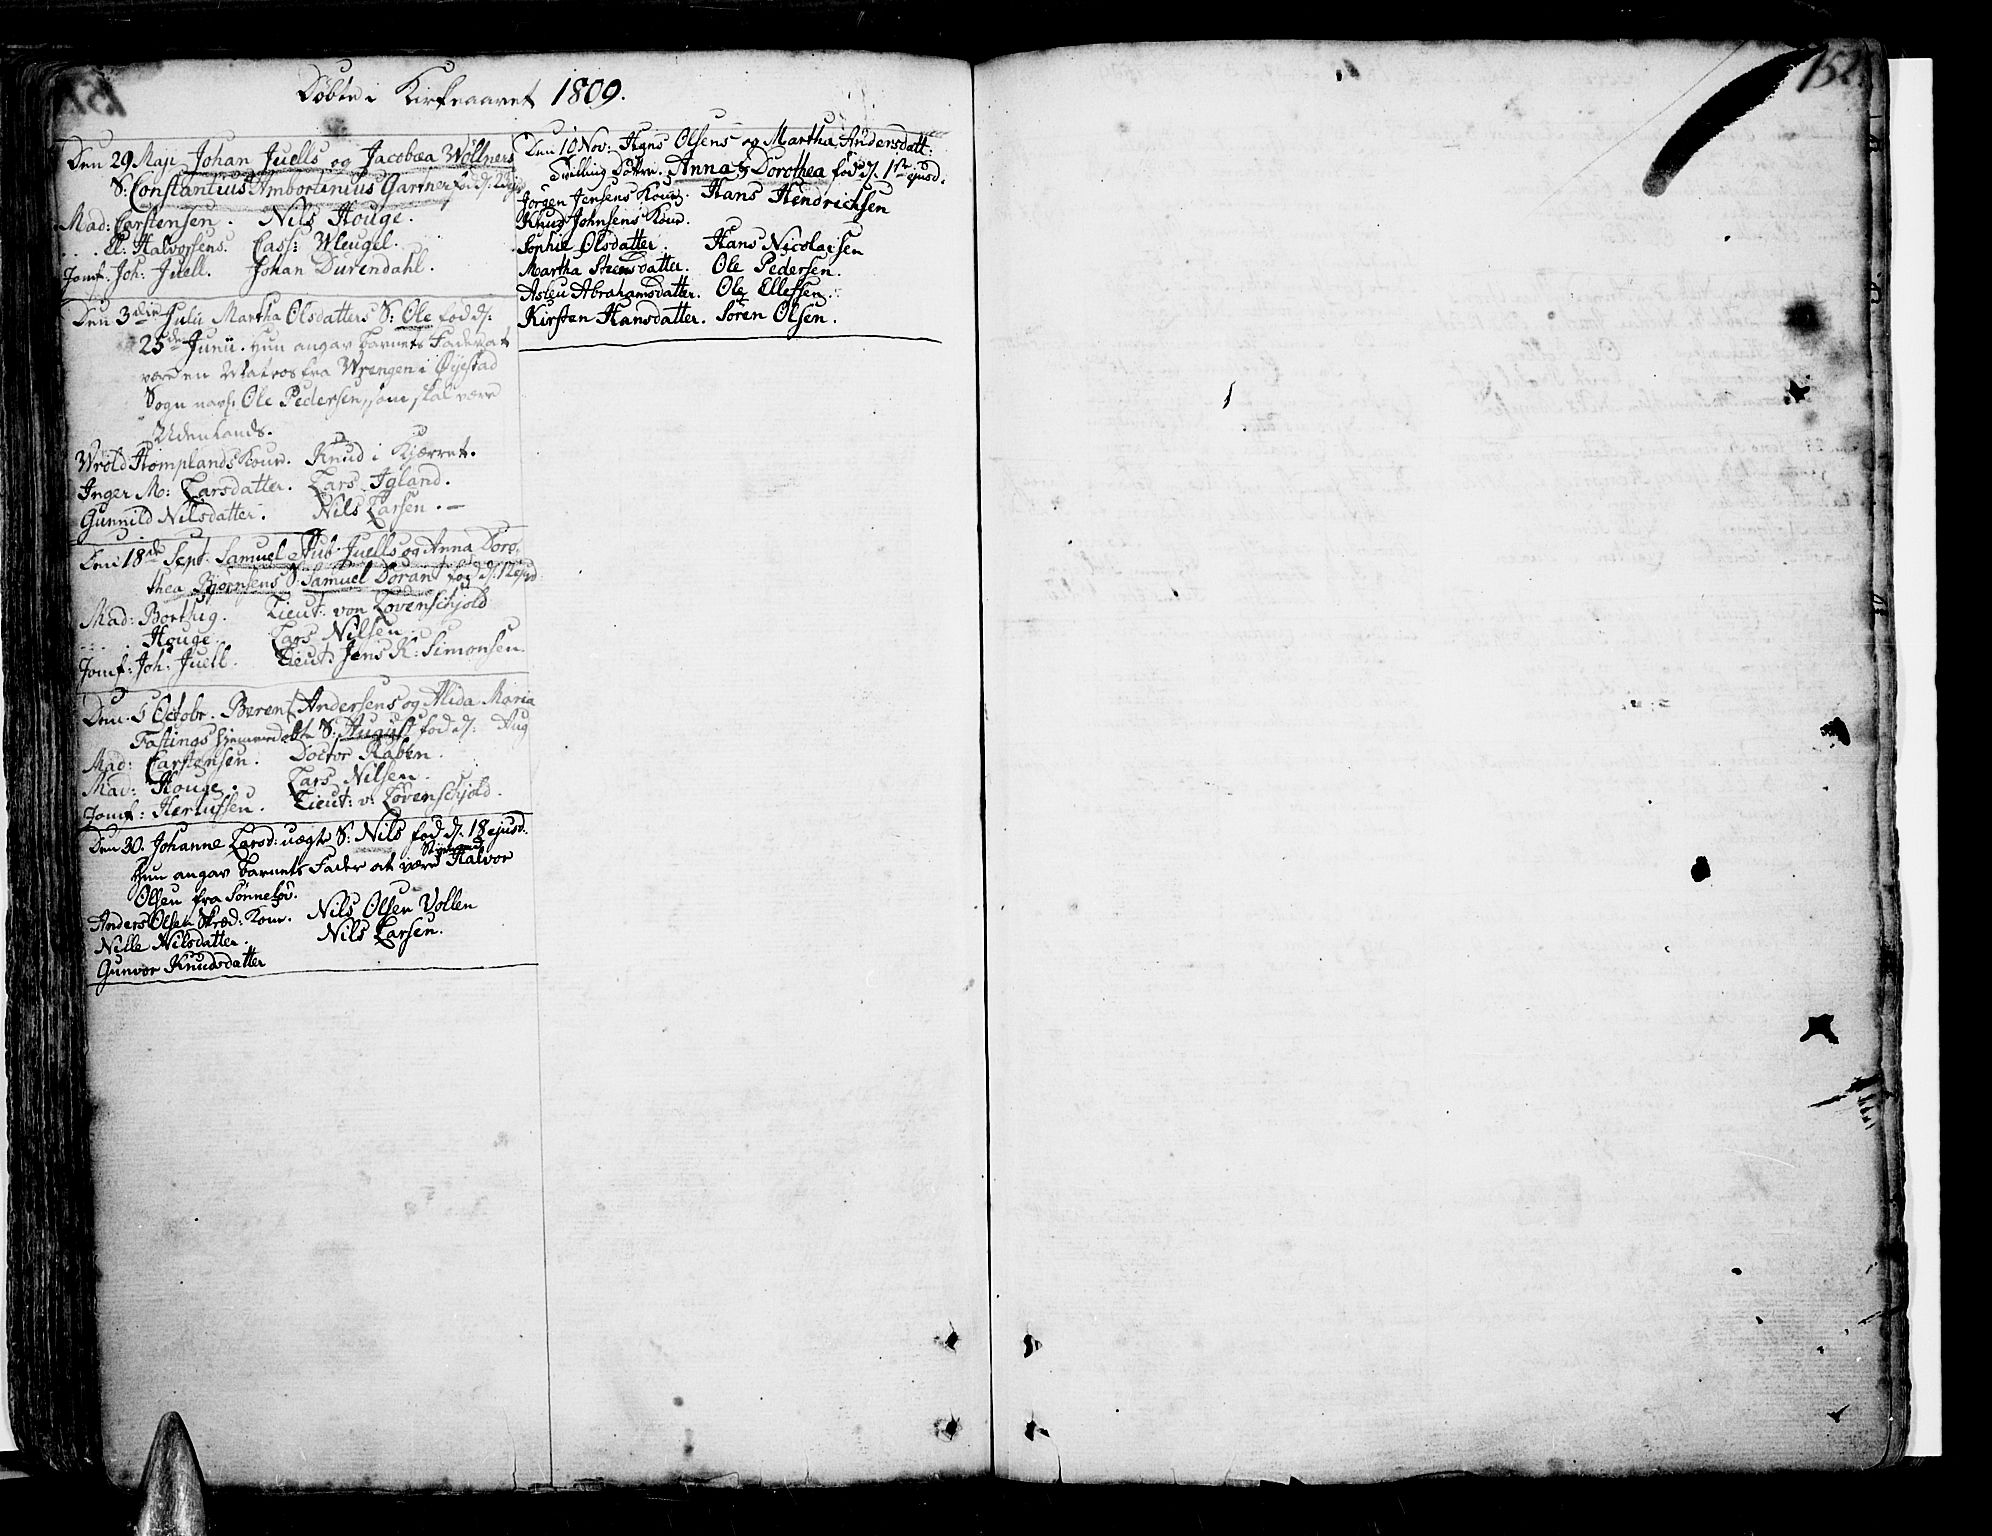 Döbte i Kirkeaaret 1809.
Den 29 Maji Johan Juells og Jacobæa Wöllners
S: Constantius Ambortinius Gartner fød d: 23
Mad: Carstensen. Nils Houge.
El: Halvorsens. Cass: Wleugel.
Jomf: Joh: Juell. Johan Durendahl.
Den 3die Julii Martha Olsdatters S: Ole fød d:
25de Junii. Hun angav barnets Fader at
være en Matros fra Wrengen i Øyestad
Sogn navf: Ole Pedersen, som skal være
Udenlands.
Wröld Homplands Kone. Knud i Kjærret.
Inger M: Larsdatter. Lars Igland.
Gunnild Nilsdatter. Nils Larsen.
Den 18de Sept. Samuel Aub. Juells og Anna Doro,
thea Bjørnsens S: Samuel Doran fød d: 12 ejusd
Mad: Borthig. Lieut: von Løvenschjold
Houge. Lars Nilsen
Jomf: Joh: Juell. Lieut: Jens K: Simonsen.
Den 5 Octobr. Berent Andersens og Alida Maria
Fastings hjemmedøbte S: August fød d: Aug
Mad: Carstensen. Doctor Raben.
Mad: Houge. Lars Nilsen.
Jomf: Herlufsen. Lieut: v: Løvenschjold.
Den 30. Johanne Larsd: uægte S: Nils fød d: 18 ejusd.
Hun angav barnets Fader at være Styrmand Halvor
Olsen fra Sønneløv.
Anders Olsen Skræd: Kone. Nils Olsen Vollen
Nille Nilsdatter. Nils Larsen.
Gunvor Knudsdatter
Den 10 Nov: Hans Olsens og Martha Andersdatt:
Tvilling Døttre. Anna & Dorothea fød d. 1ste ejusd.
Jörgen Jensens Kone. Hans Hendrichsen
Knud Johnsens Kone.
Sophie Olsdatter. Hans Nicolaisen
Martha Steensdatter. Ole Pedersen.
Asleu Abrahamsdatter. Ole Ellefsen.
Kirsten Hansdatter. Sören Olsen.
152